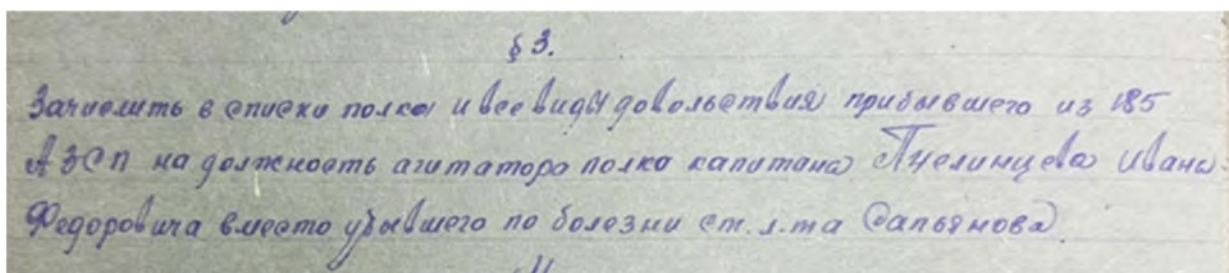 § 3.
Зачислить в списки полка и все виды довольствия прибывшего из 185
АЗСП на должность агитатора полка капитана Пчелинцева Ивана
Федоровича вместо убывшего по болезни ст. л-та Сапьянова